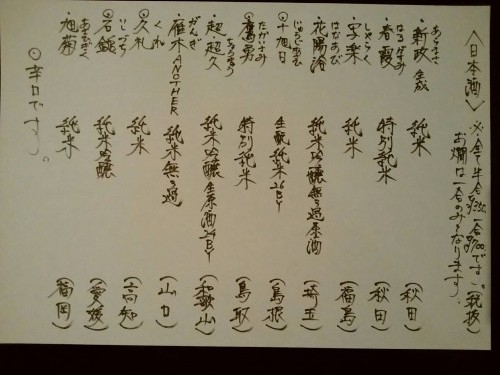 〈日本酒〉 ※全て半合 一合 です。(税抜)
お燗は一合のみとなります。
あらまさ
・新政 生成 純米 (秋田)
はるがすみ
・春霞 特別純米 (秋田)
しゃらく
・写楽 純米 (福島)
はなあび
・花陽浴 純米吟醸無ろ過原酒 (埼玉)
じゅうじあさひ
○十旭日 生酛純米26BY (島根)
たかいさみ
・鷹勇 特別純米 (鳥取)
・超超久 純米吟醸生原酒24BY (和歌山)
がんぎ
・雁木ANOTHER 純米無ろ過 (山口)
くれ
○久礼 純米 (高知)
いしづち
○石鎚 純米吟醸 (愛媛)
あさひぎく
・旭菊 純米 (福岡)
○辛口です。